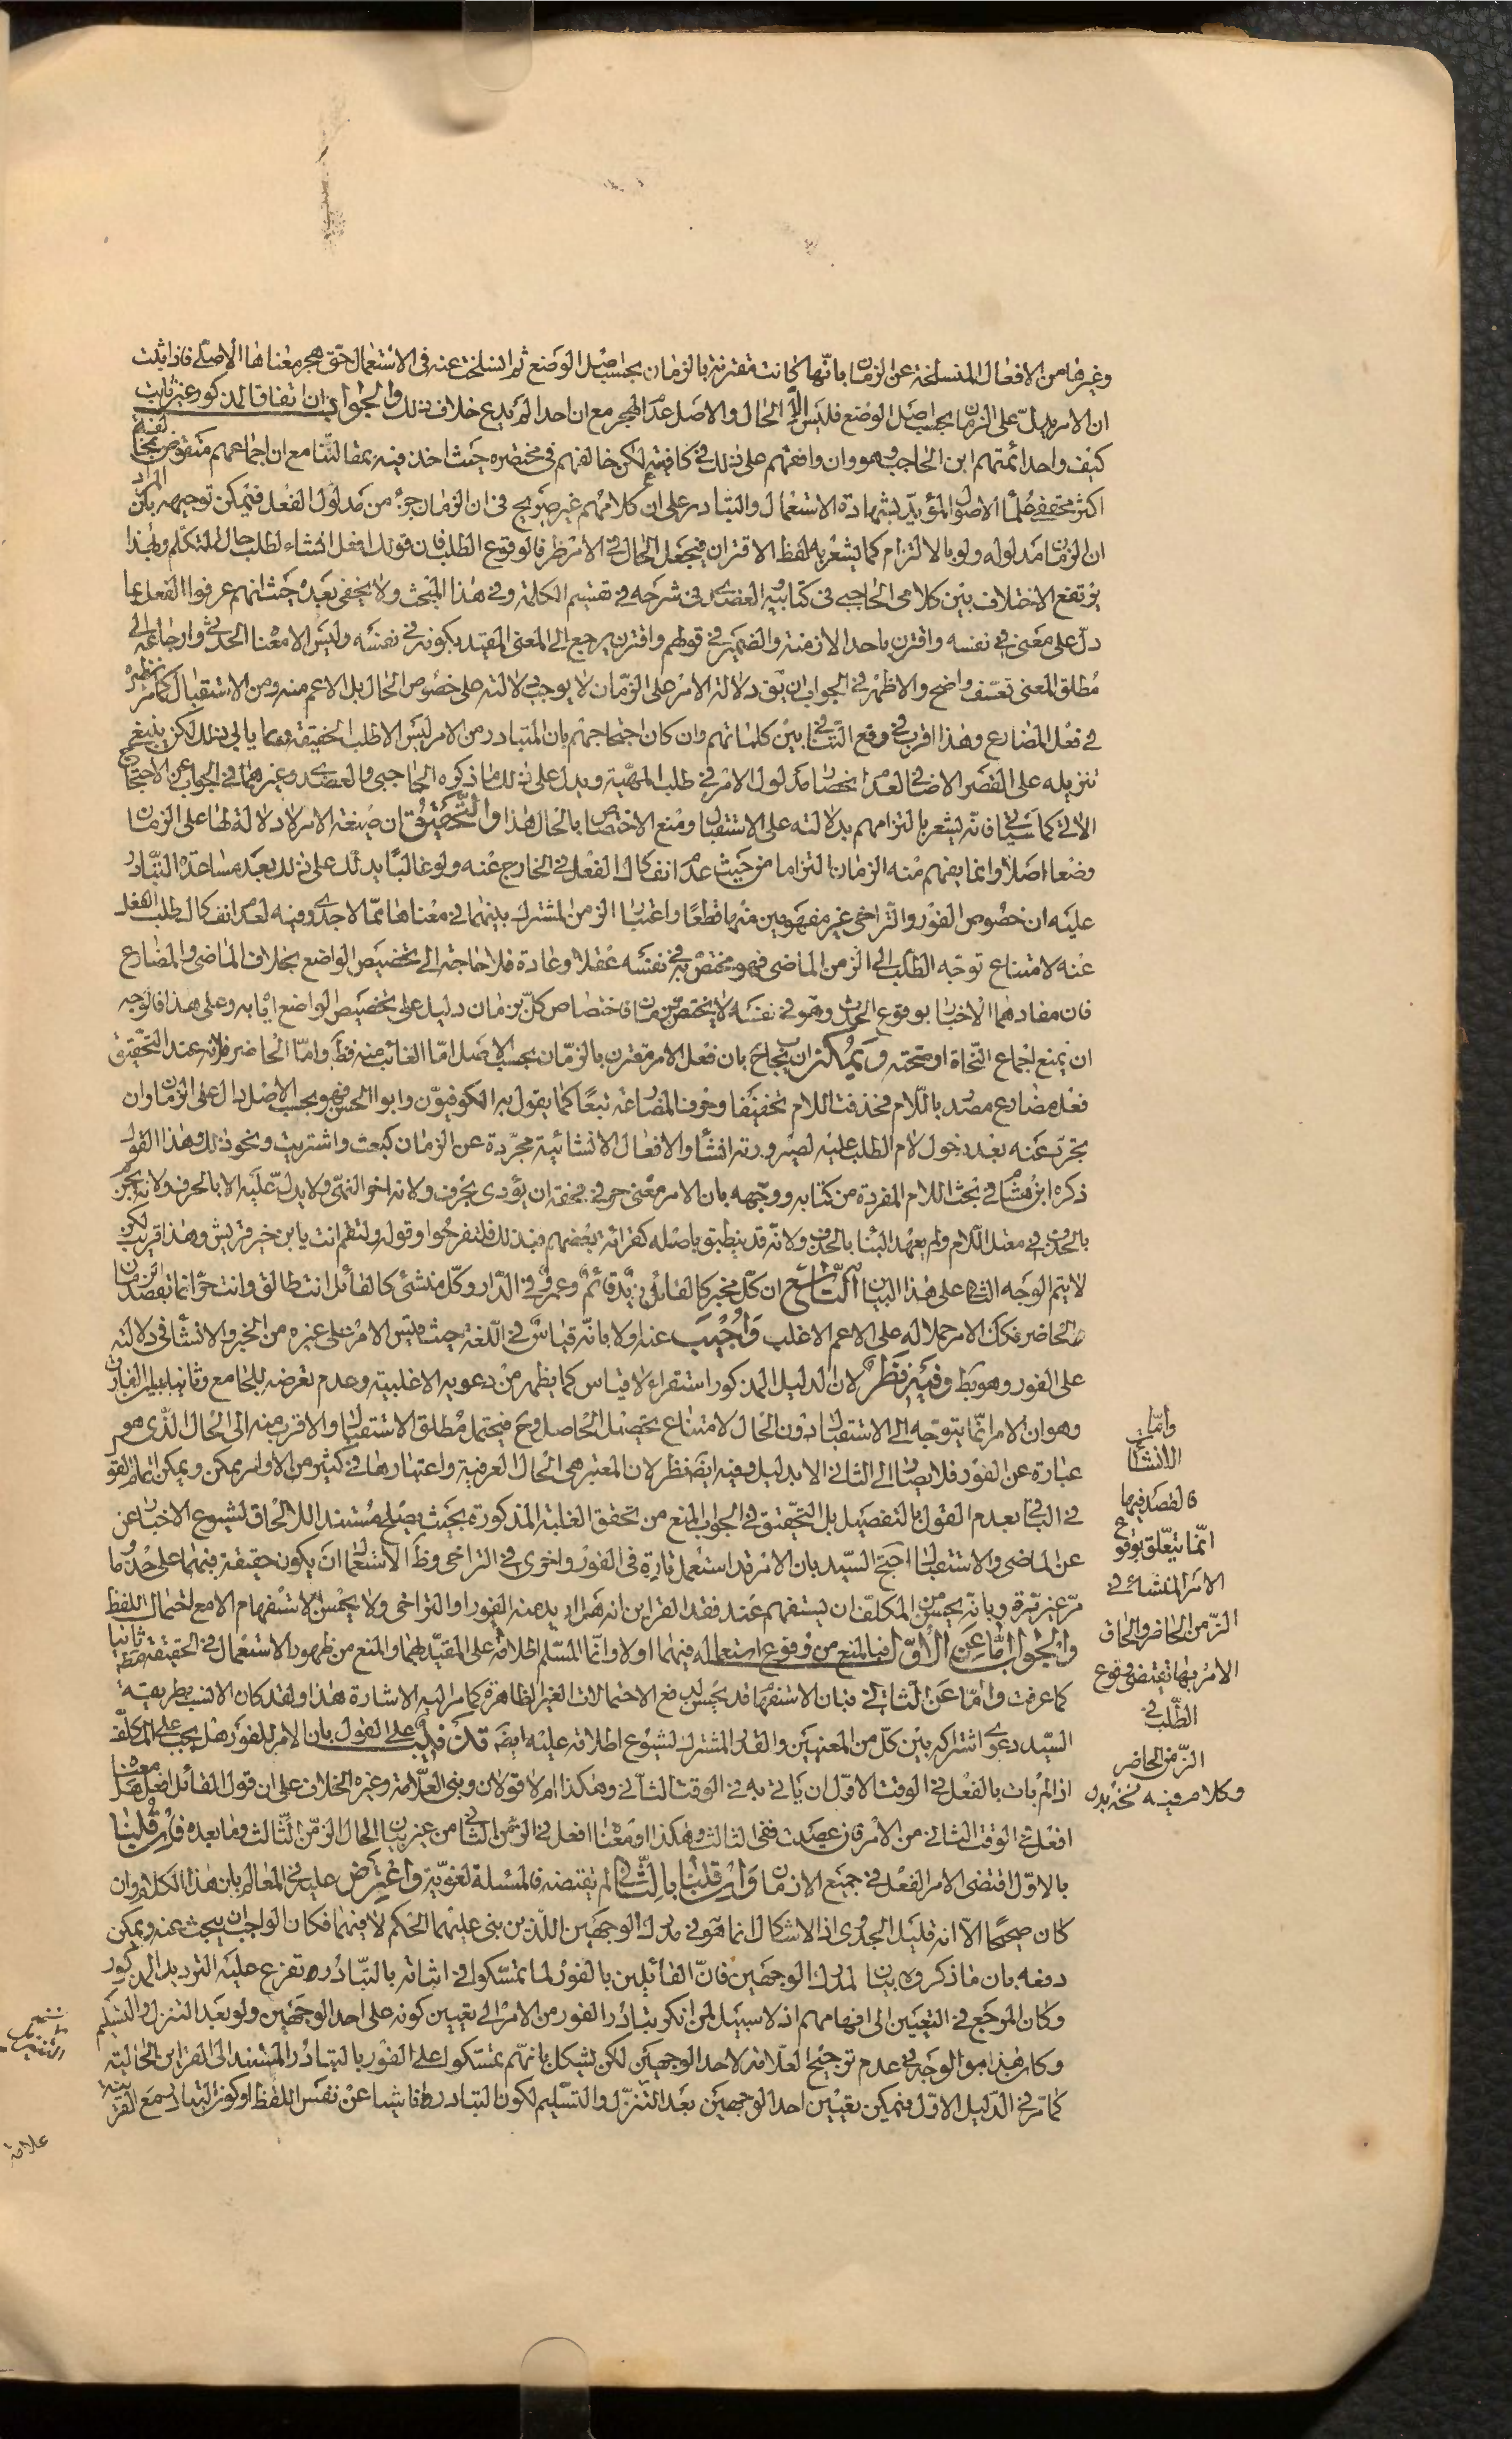 وغيرها من الافعال المنسلخة عن الزمان بانها كانت مقترنة بالزمان بحسب اصل الوضع ثم انسلخت عنه فى الاستعمال حتى هجر معناها الاصلى فاذا ثبت
ان الامر يدل على الزمان بحسب اصل الوضع فليس الا الحال والاصل عدم الهجر مع ان احدا لم يدع خلاف ذلك والجواب ان اتفاق المذكور غير ثابت
كيف واحد ائمتهم ابن الحاجب وهو وان وافقهم على ذلك فى كافيته لكن خالفهم فى مختصره حيث اخذ فيه بمقالتنا مع ان اجماعهم منقوض بمخالفة
اكثر محققى علماء الاصول المؤيد بشهادة الاستعمال والتبادر على ان كلامهم غير صريح فى ان الزمان جزء من مدلول الفعل فيمكن توجيهه بكن المراد
ان الزمان مدلوله ولو بالالتزام كما يشعر به لفظ الاقتران فيجعل الحال فى الامر ظرفا لوقوع الطلب فان قولك افعل انشاء لطلب حال التكلم وبهذا
يرتفع الاختلاف بين كلامى الحاجبى فى كتابيه العضدى فى شرحه فى تقسيم الكلمة وفى هذا المبحث ولا يخفى بعده حيث انهم عرفوا الفعل بما
دل على معنى فى نفسه واقترن باحد الازمنة والضمير فى قولهم واقترن يرجع الى المعنى المقيد بكونه فى نفسه وليس الا معنا الحدث وارجاعه الى
مطلق المعنى تعسف واضح والاظهر فى الجواب ان يق دلالة الامر على الزمان لا يوجب دلالته على خصوص الحال بل الاعم منه ومن الاستقبال كما مر نظيره
فى فعل المضارع وهذا اقرب فى رفع التنافى بين كلماتهم وان كان احتجاجهم بان المتبادر من الامر ليس الا طلب الحقيقة مما يابى ذلك لكن ينبغى
تنزيله على القصر الاضافى لعدم انحصار مدلول الامر فى طلب المهية ويدل على ذلك ما ذكره الحاجبى والعضدى وغيرهما فى الجواب عن الاحتجاج
الاتى كما سياتى فانه يشعر بالتزامهم بدلالته على الاستقبال ومنع الاختصاص بالحال هذا والتحقيق ان صيغة الامر لا دلالة لها على الزمان
وضعا اصلا وانما يفهم منه الزمان التزاما من حيث عدم انفكاك الفعل فى الخارج عنه ولو غالبا يدلك على ذلك بعد مساعدة التبادر
عليه ان خصوص الفور والتراخى غير مفهومين منها قطعا واعتبار الزمن المشترك بينهما فى معناها مما لا جدوى فيه لعدم انفكاك طلب الفعل
عنه لامتناع توجه الطلب الى الزمن الماضى فهو مختص به فى نفسه عقلا وعادة فلا حاجة الى تخصيص الواضع بخلاف الماضى والمضارع
فان مفادهما الاخبار بوقوع الحدث وهو فى نفسه لا يختص بزمان فاختصاص كل بزمان دليل على تخصيص الواضع اياه به وعلى هذا فالوجه
ان يمنع اجماع النحاة او صحته ويمكن ان يجاب بان فعل الامر مقترن بالزمان بحسب الاصل اما الغائب منه فظ واما الحاضر فلانه عند التحقيق
فعل مضارع مصدر باللام فحذفت اللام تخفيفا وحرف المضارعة تبعا كما يقول به الكوفيون وابو الحسن فهو بحسب الاصل دال على الزمان وان
تجرد عنه بعد دخول لام الطلب عليه لصيرورته انشاء والافعال الانشائية مجردة عن الزمان كبعت واشتريت ونحو ذلك وهذا القول
ذكره ابن هشام فى بحث اللام المفردة من كتابه ووجهه بان الامر معنى حرفى فحقه ان يؤدى بحرف ولانه اخو النهى ولا يدل عليه الا بالحرف ولانه يجزم
بالحذف فى معتل اللام ولم يعهد البناء بالحذف ولانه قد ينطبق باصله كقرائة بعضهم فبذلك فلتفرحوا وقوله ولتقم انت يا بن خير قريش وهذا قريب لكن
لا يتم الوجه الثانى على هذا البيان التاسع ان كل مخبر كالقائل زيد قائم وعمرو فى الدار وكل منشئ كالقائل انت طالق وانت حر انما يقصد الزمان
الحاضر فكك الامر حملا له على الاعم الاغلب واجيب عنه اولا بانه قياس فى اللغة حيث قيس الامر على غيره من الخبر والانشاء فى دلالته
على الفور وهو بط وفيه نظر لان الدليل المذكور استقراء لا قياس كما يظهر من دعويه الاغلبية وعدم تعرضه للجامع وثانيا بابداء الفارق
وهو ان الامر انما يتوجه الى الاستقبال دون الحال لامتناع تحصيل الحاصل وح فيحتمل مطلق الاستقبال والاقرب منه الى الحال الذى هو
عبارة عن الفور فلا يصار الى الثانى الا بدليل وفيه ايضا نظر لان المعتبر هى الحال العرفية واعتبارها فى كثير من الاوامر ممكن ويمكن اتمام القول
فى الباقى بعدم القول بالتفصيل بل التحقيق فى الجواب المنع من تحقق الغلبة المذكورة بحيث يصلح مستندا للالحاق لشيوع الاخبار عن
عن الماضى والاستقبال احتج السيد بان الامر قد استعمل تارة فى الفور واخرى فى التراخى وظ الاستعمال ان يكون حقيقة فيهما على حد ما
مر غير مرة وبانه يحسن من المكلف ان يستفهم عند فقد القراين انه هل اريد منه الفور او التراخى ولا يحسن الاستفهام الا مع احتمال اللفظ
والجواب اما عن الاول فبالمنع من وقوع استعماله فيهما اولا وانما المسلم اطلاقه على المقيد لهما والمنع من ظهور الاستعمال فى الحقيقة مطلقا ثانيا
كما عرفت واما عن الثانى فبان الاستفهام قد يحسن لدفع الاحتمالات الغير الظاهرة كما مر اليه الاشارة هذا ولقد كان الانسب بطريقة
السيد دعوى اشتراكه بين كل من المعنيين والقدر المشترك لشيوع اطلاقه عليه ايضا تذنيب على القول بان الامر للفور هل يجب على المكلف
اذا لم يات بالفعل فى الوقت الاول ان ياتى به فى الوقت الثانى وهكذا ام لا قولان وبنى العلامة وغيره الخلاف على ان قول القائل افعل هل معناه
افعل فى الوقت الثانى من الامر فان عصيت ففى الثالث وهكذا او معناه افعل فى الزمن الثانى من غير بيان الحال الزمن الثالث وما بعده فان قلنا
بالاول اقتضى الامر الفعل فى جميع الازمان وان قلنا بالثانى لم يقتضه فالمسئلة لغوية واعترض عليه فى المعالم بان هذا الكلام وان
كان صحيحا الا انه قليل الجدوى اذ الاشكال انما هو فى مدرك الوجهين اللذين بنى عليهما الحكم لا فيهما فكان الواجب ان يبحث عنه ويمكن
دفعه بان ما ذكروه بيان لمدرك الوجهين فان القائلين بالفور لما تمسكوا فى اثباته بالتبادر تفرع عليه الترديد المذكور
وكان المرجع فى التعيين الى افهامهم اذ لا سبيل لمن انكر تبادر الفور من الامر الى تعيين كونه على احد الوجهين ولو بعد التنزل والتسليم
وكان هذا هو الوجه فى عدم ترجيح العلامة لاحد الوجهين لكن يشكل بانهم تمسكوا على الفور بالتبادر المستند الى القراين الحالية
كما مر فى الدليل الاول فيمكن تعيين احد الوجهين بعد التنزل والتسليم لكون التبادر ناشيا عن نفس اللفظ او كون التبادر مع القرينة
واما
الانشاء
فالقصد فيهما
انما يتعلق بوقوع
الامر المنشائى فى
الزمن الحاضر والحاق
الامر بهما يقتضى وقوع
الطلب فى
الزمن الحاضر
وكلامه فيه